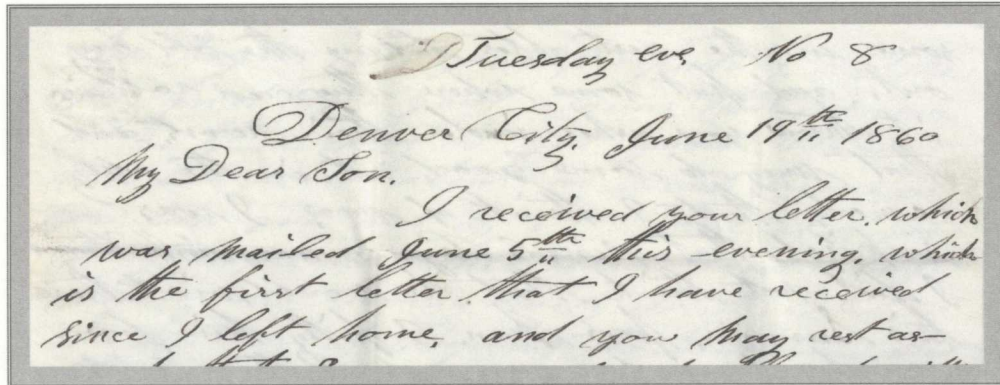 Tuesday eve, No 8
Denver City, June 19th 1860
My Dear Son.
I received your letter, which
was, mailed June 5th this evening, which
is the first letter that I have received
since I left home, and you may rest as-